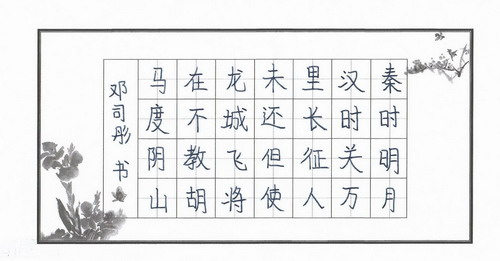 秦时明月
汉时关万
里长征人
未还但使
龙城飞将
在不教胡
马度阴山
邓司彤 书